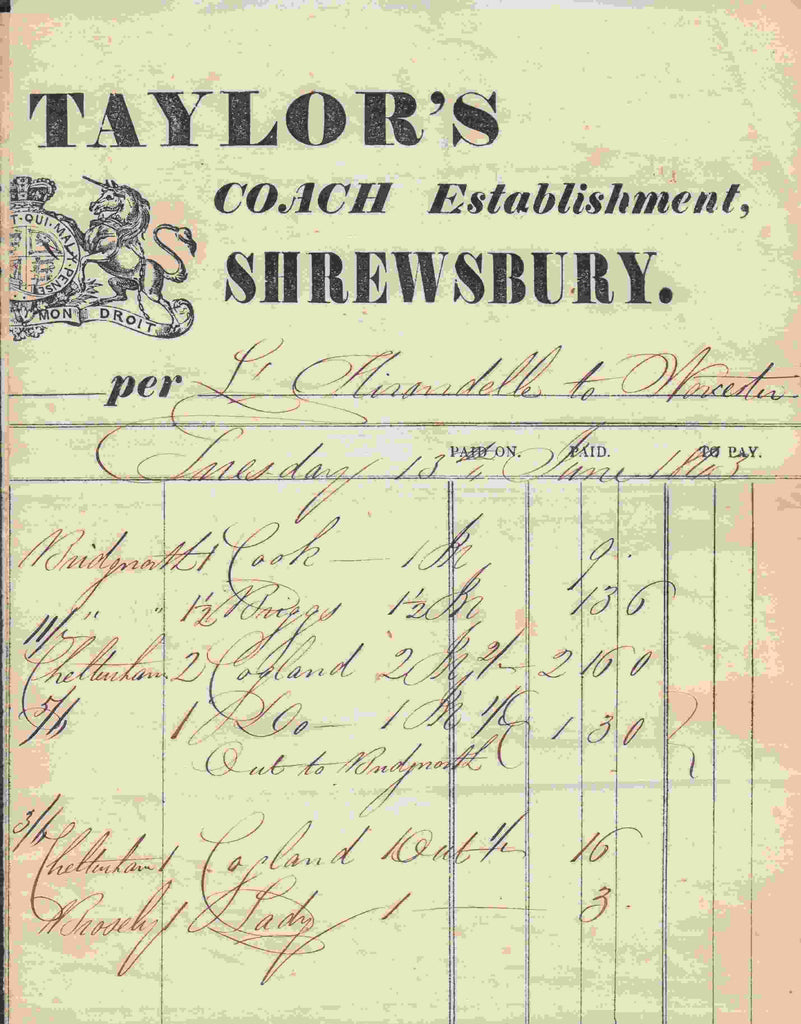 TAYLOR'S
COACH Establishment,
SHREWSBURY.
T·QUI·MAL·Y·PENSE
MON DROIT
per L' Hirondelle to Worcester
PAID ON. PAID. TO PAY.
Tuesday 13th June 1843
Bridgnorth 1 Cook — 1 In 9 .
" " 1½ Briggs 1½ In 13 6
11/-
Cheltenham 2 Copland 2 In 2/- 2 16 0
5/6 1 Do 1 In 1/6 1 3 0
Out to Bridgnorth
3/6
Cheltenham 1 Copland 1 Out 1/- 16
Brosely 1 Lady 1 — 3